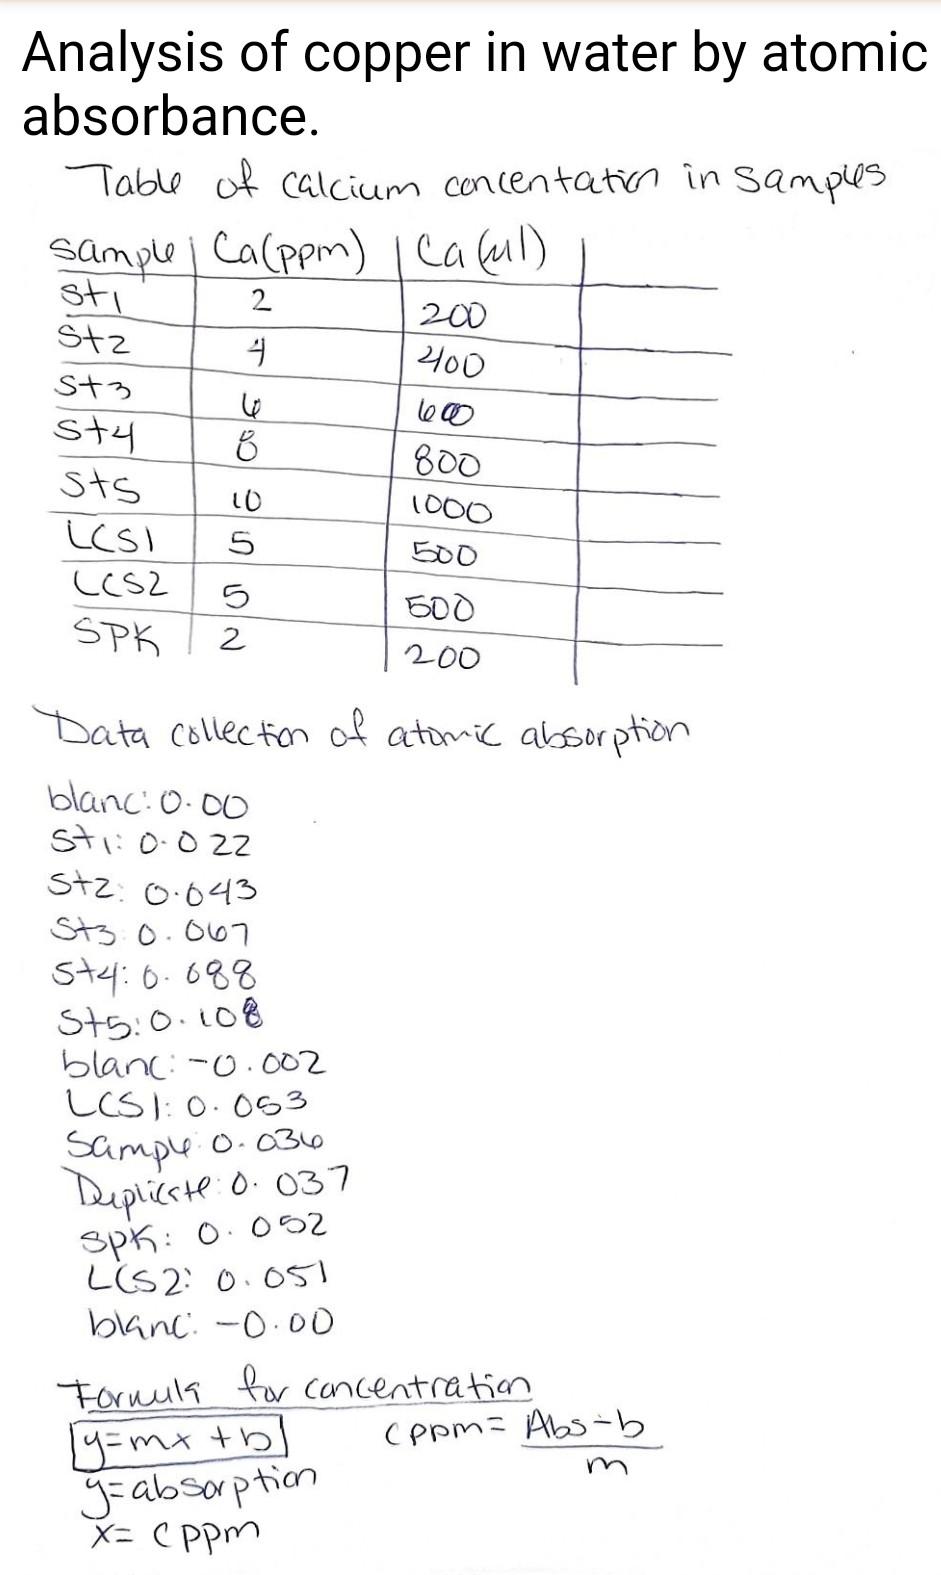 Analysis of copper in water by atomic
absorbance.
Table of calcium concentation in samples
sample Ca(ppm) Ca(µl)
St1 2 200
St2 4 400
St3 6 600
St4 8 800
St5 10 1000
LCS1 5 500
LCS2 5 500
SPK 2 200
Data collection of atomic absorption
blanc: 0.00
St1: 0.022
St2: 0.043
St3: 0.067
St4: 0.088
St5: 0.108
blanc: -0.002
LCS1: 0.053
Sample: 0.036
Duplicate: 0.037
SPK: 0.052
LCS2: 0.051
blanc: -0.00
Formula for concentration
y=mx +b Cppm= Abs-b
m
y=absorption
x= Cppm